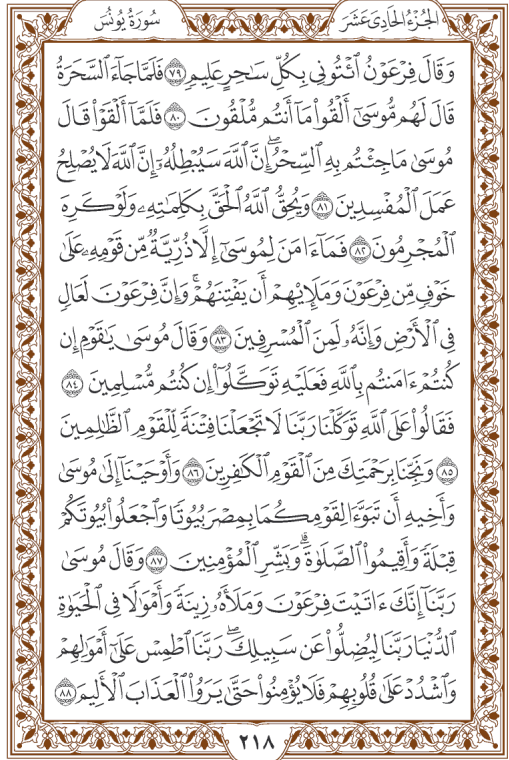 الجُزْءُ الحَادِى عَشَرَ
سُورَةُ يُونُسَ
وَقَالَ فِرْعَوْنُ ٱئْتُونِى بِكُلِّ سَٰحِرٍ عَلِيمٍ ٧٩ فَلَمَّا جَآءَ ٱلسَّحَرَةُ
قَالَ لَهُم مُّوسَىٰٓ أَلْقُوا۟ مَآ أَنتُم مُّلْقُونَ ٨٠ فَلَمَّآ أَلْقَوْا۟ قَالَ
مُوسَىٰ مَا جِئْتُم بِهِ ٱلسِّحْرُ ۖ إِنَّ ٱللَّهَ سَيُبْطِلُهُۥٓ ۖ إِنَّ ٱللَّهَ لَا يُصْلِحُ
عَمَلَ ٱلْمُفْسِدِينَ ٨١ وَيُحِقُّ ٱللَّهُ ٱلْحَقَّ بِكَلِمَٰتِهِۦ وَلَوْ كَرِهَ
ٱلْمُجْرِمُونَ ٨٢ فَمَآ ءَامَنَ لِمُوسَىٰٓ إِلَّا ذُرِّيَّةٌ مِّن قَوْمِهِۦ عَلَىٰ
خَوْفٍ مِّن فِرْعَوْنَ وَمَلَإِي۟هِمْ أَن يَفْتِنَهُمْ ۚ وَإِنَّ فِرْعَوْنَ لَعَالٍ
فِى ٱلْأَرْضِ وَإِنَّهُۥ لَمِنَ ٱلْمُسْرِفِينَ ٨٣ وَقَالَ مُوسَىٰ يَٰقَوْمِ إِن
كُنتُمْ ءَامَنتُم بِٱللَّهِ فَعَلَيْهِ تَوَكَّلُوٓا۟ إِن كُنتُم مُّسْلِمِينَ ٨٤
فَقَالُوا۟ عَلَى ٱللَّهِ تَوَكَّلْنَا رَبَّنَا لَا تَجْعَلْنَا فِتْنَةً لِّلْقَوْمِ ٱلظَّٰلِمِينَ
٨٥ وَنَجِّنَا بِرَحْمَتِكَ مِنَ ٱلْقَوْمِ ٱلْكَٰفِرِينَ ٨٦ وَأَوْحَيْنَآ إِلَىٰ مُوسَىٰ
وَأَخِيهِ أَن تَبَوَّءَا لِقَوْمِكُمَا بِمِصْرَ بُيُوتًا وَٱجْعَلُوا۟ بُيُوتَكُمْ
قِبْلَةً وَأَقِيمُوا۟ ٱلصَّلَوٰةَ ۗ وَبَشِّرِ ٱلْمُؤْمِنِينَ ٨٧ وَقَالَ مُوسَىٰ
رَبَّنَآ إِنَّكَ ءَاتَيْتَ فِرْعَوْنَ وَمَلَأَهُۥ زِينَةً وَأَمْوَٰلًا فِى ٱلْحَيَوٰةِ
ٱلدُّنْيَا رَبَّنَا لِيُضِلُّوا۟ عَن سَبِيلِكَ ۖ رَبَّنَا ٱطْمِسْ عَلَىٰٓ أَمْوَٰلِهِمْ
وَٱشْدُدْ عَلَىٰ قُلُوبِهِمْ فَلَا يُؤْمِنُوا۟ حَتَّىٰ يَرَوُا۟ ٱلْعَذَابَ ٱلْأَلِيمَ ٨٨
٢١٨